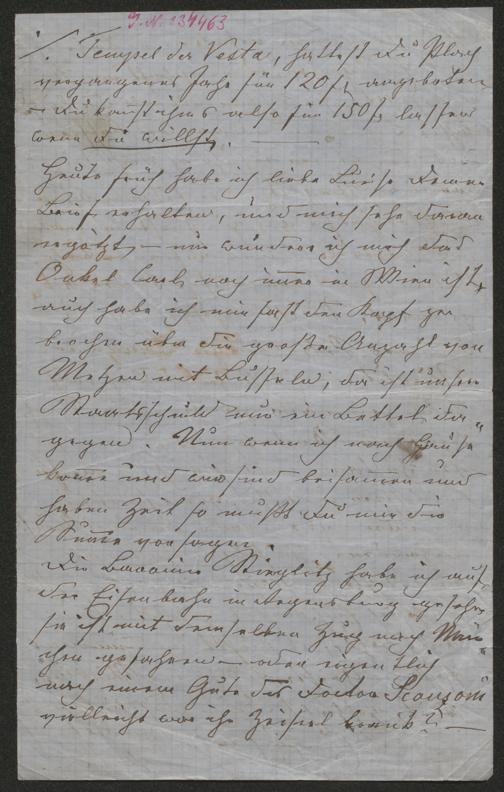 J.N. 134463
./. Tempel der Vesta, hattest Du Plach
vergangenes Jahr für 120 fl angeboten
– Du kannst ihms also für 150 fl lassen
wenn Du willst.
Heute früh habe ich liebe Luise Deinen
Brief erhalten, und mich sehr daran
ergötzt – nur wundere ich mich daß
Onkel Carl noch immer in Wien ist,
auch habe ich mir fast den Kopf zer
brochen über die große Anzahl von
Metzen mit Busserln, da ist unsere
Staatsschuld nur ein Bettel da
gegen. Nun wenn ich nach Hause
komme und wir sind beisammen und
haben Zeit so mußt Du mir die
Summe vorsagen.
Die Baronin Stieglitz habe ich auf
der Eisenbahn in Regensburg gesehen
sie ist mit demselben Zug nach Mün
chen gefahren – oder eigentlich
nach einem Gute des Doctor
vielleicht war ihr Zeiserl krank? –